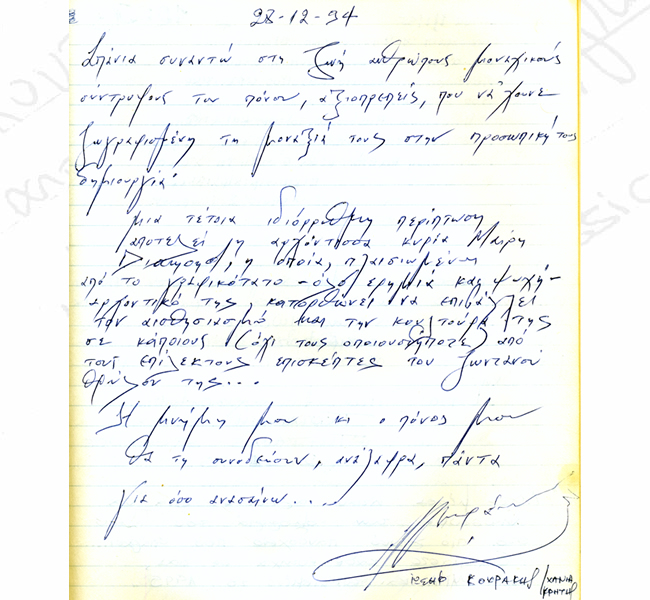 28-12-94
Σπάνια συναντώ στη ζωή ανθρώπους μοναχικούς
σύντροφους του πόνου, αξιοπρεπείς, που νά'χουνε
ζωγραφισμένη τη μοναξιά τους στην προσωπική τους
δημιουργία·
μια τέτοια ιδιόρρυθμη περίπτωση
αποτελεί η αρχόντισσα κυρία Μαίρη
η οποία, πλαισιωμένη
από το γραφικότατο - όλο ερημιά και ψυχή -
αρχοντικό της, καταφέρνει να επιβάλλει
τον αισθησιασμό και την κουλτούρα της
σε κάποιους (όχι τους οποιουσδήποτε) από
τους επίλεκτους επισκέπτες του ζωντανού
θρύλου της...
Η μνήμη μου κι ο πόνος μου
θα τη συνοδεύουν, ανάλαφρα, πάντα
για όσο ανασαίνω...
ΚΟΥΡΑΚΗΣ / ΧΑΝΙΑ
ΚΡΗΤΗΣ